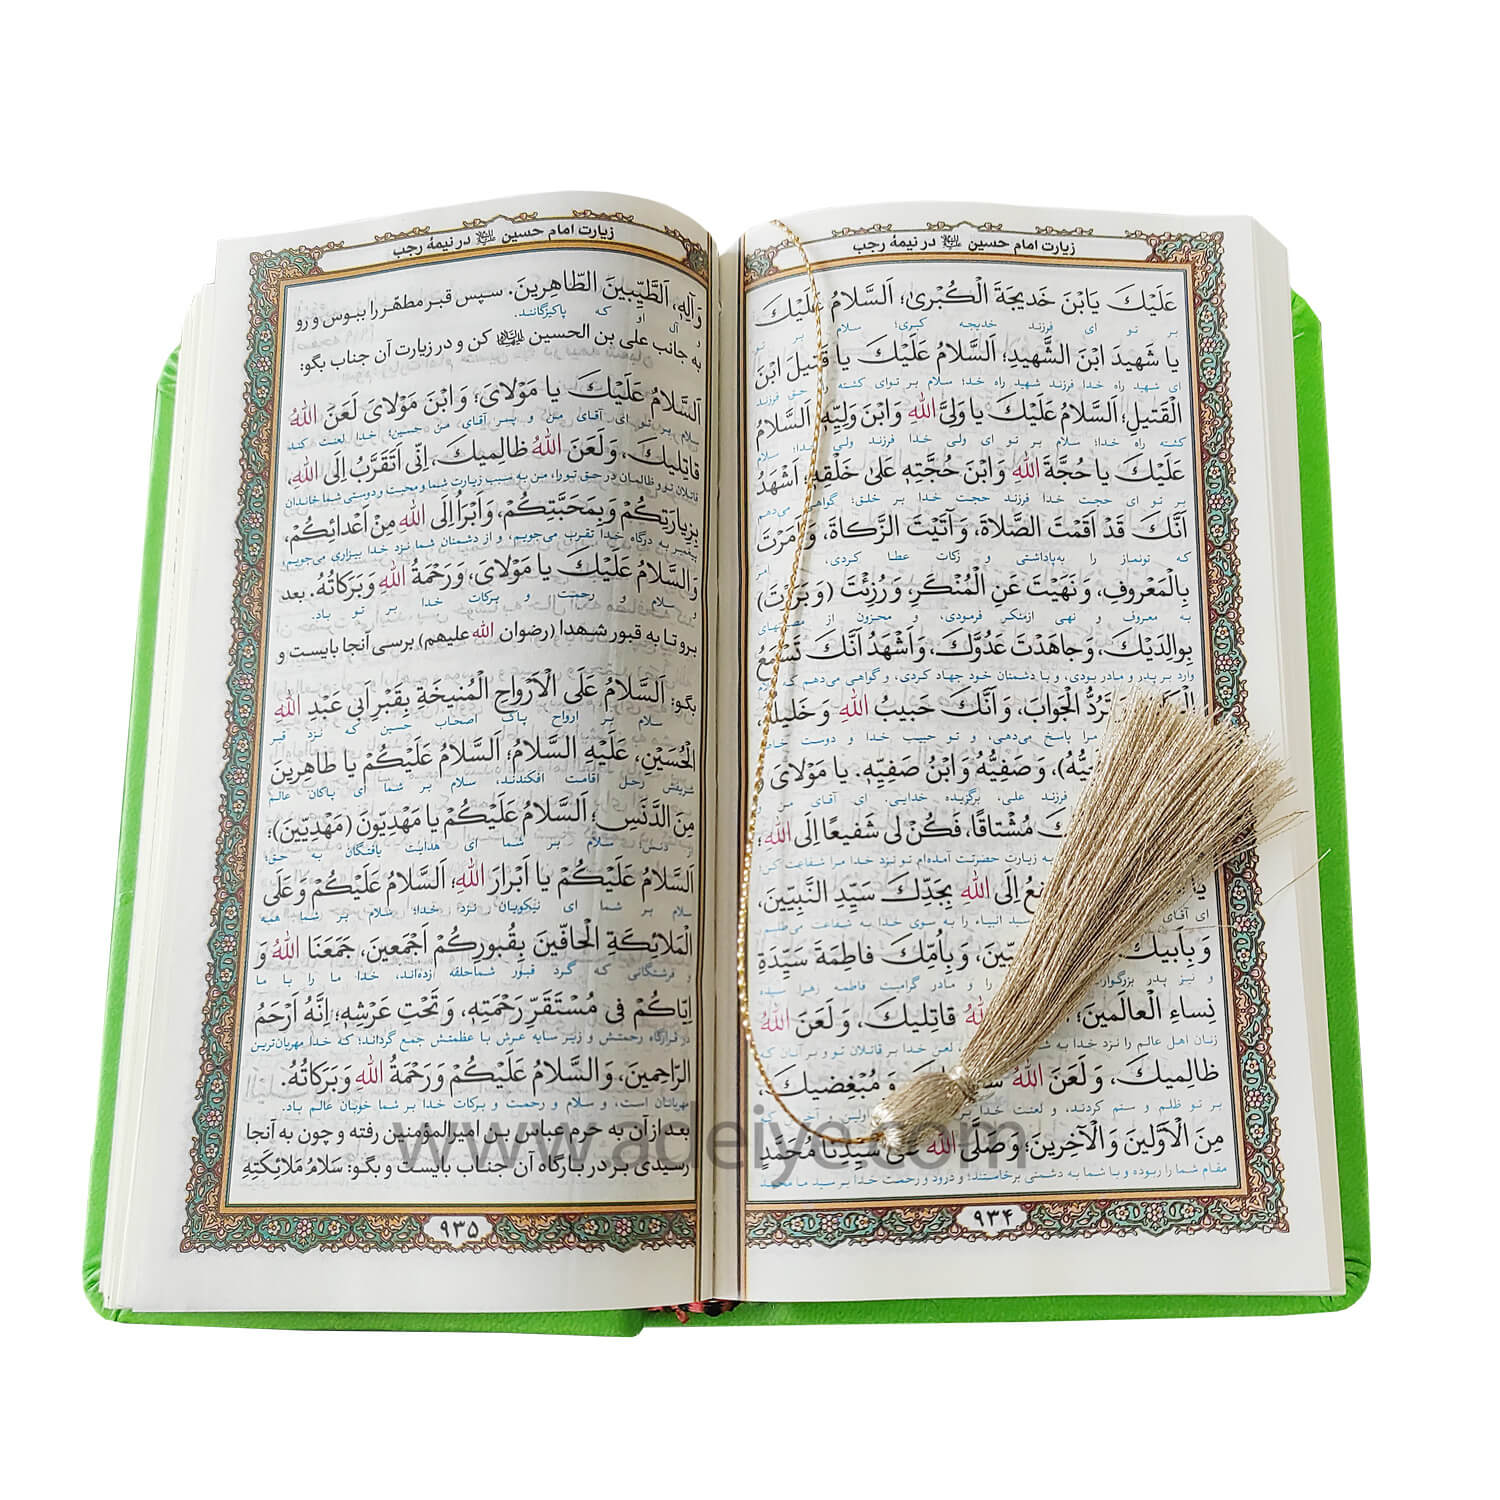 زیارت امام حسین علیه‌السلام در نیمهٔ رجب
عَلَیْكَ یَابْنَ خَدیجَةَ الْكُبْرىٰ؛ اَلسَّلامُ عَلَیْكَ
بر تو ای فرزند خدیجه کبری؛ سلام بر تو
یا شَهیدَ ابْنَ الشَّهیدِ؛ اَلسَّلامُ عَلَیْكَ یا قَتیلَ ابْنَ
ای شهید راه خدا فرزند شهید راه خدا؛ سلام بر توای کشته راه حق فرزند
الْقَتیلِ؛ اَلسَّلامُ عَلَیْكَ یا وَلِیَّ اللهِ وَابْنَ وَلِیِّهِ؛ اَلسَّلامُ
کشته راه خدا؛ سلام بر تو ای ولی خدا فرزند ولی خدا؛ سلام
عَلَیْكَ یا حُجَّةَ اللهِ وَابْنَ حُجَّتِهِ عَلىٰ خَلْقِهِ؛ اَشْهَدُ
بر تو ای حجت خدا فرزند حجت خدا بر خلق؛ گواهی می‌دهم
اَنَّكَ قَدْ اَقَمْتَ الصَّلاةَ، وَ آتَیْتَ الزَّكاةَ، وَ اَمَرْتَ
که تونماز را به‌پاداشتی و زکات عطا کردی، امر
بِالْمَعْرُوفِ، وَ نَهَیْتَ عَنِ الْمُنْكَرِ، وَ رُزِئْتَ (وَ بَرَرْتَ)
به معروف و نهی ازمنکر فرمودی، و محزون از مصیبتهای
بِوالِدَیْكَ، وَ جاهَدْتَ عَدُوَّكَ، وَ اَشْهَدُ اَنَّكَ تَسْمَعُ
وارد بر پدر و مادر بودی، و با دشمنان خود جهاد کردی، و گواهی می‌دهم که کلام
تَرُدُّ الْجَوابَ، وَ اَنَّكَ حَبیبُ اللهِ وَ خَلیلُهُ،
مرا پاسخ می‌دهی، و تو حبیب خدا و دوست خدا
وَ صَفِیُّهُ وَ ابْنُ صَفِیِّهِ. یا مَوْلایَ وَ
فرزند علی، برگزیده خدایی. ای آقای من و
مُشْتاقًا، فَكُنْ لی شَفیعًا اِلَى اللهِ،
به زیارت حضرتت آمده‌ام تو نزد خدا مرا شفاعت کن؛
یا اِلَى اللهِ بِجَدِّكَ سَیِّدِ النَّبِیّینَ،
ای آقای سید انبیاء، را به سوی خدا به شفاعت می‌طلبم
وَ بِاَبیكَ وَ بِاُمِّكَ فاطِمَةَ سَیِّدَةِ
و نیز پدر بزرگوار را و مادر گرامیت فاطمه زهرا سیده
نِساءِ الْعالَمینَ؛ اللهُ قاتِلیكَ، وَ لَعَنَ اللهُ
زنان اهل عالم را نزد خدا به لعن خدا بر قاتلان تو و بر آنان که
ظالِمیكَ، وَ لَعَنَ اللهُ وَ مُبْغِضیكَ،
بر تو ظلم و ستم کردند، و لعنت خدا بر اولین و آخرین که
مِنَ الْاَوَّلینَ وَ الْآخِرینَ؛ وَ صَلَّى اللهُ عَلىٰ سَیِّدِنا مُحَمَّدٍ
مقام شما را ربوده و با شما به دشمنی برخاستند؛ و درود و رحمت خدا بر سید ما محمد
۹۳۴
زیارت امام حسین علیه‌السلام در نیمهٔ رجب
وَ آلِهِ، اَلطَّیِّبینَ الطّاهِرینَ. سپس قبر مطهّر را ببوس و رو
و آل او که پاکیزگانند.
به جانب علی بن الحسین علیه‌السلام کن و در زیارت آن جناب بگو:
اَلسَّلامُ عَلَیْكَ یا مَوْلایَ؛ وَ ابْنَ مَوْلایَ لَعَنَ اللهُ
سلام بر تو ای آقای من و پسر آقای من حسین؛ خدا لعنت کند
قاتِلیكَ، وَ لَعَنَ اللهُ ظالِمیكَ، اِنّی اَتَقَرَّبُ اِلَى اللهِ،
قاتلان تو و ظالمان در حق تو را، من به سبب زیارت شما و محبت و دوستی شما خاندان
بِزِیارَتِكُمْ وَ بِمَحَبَّتِكُمْ، وَ اَبْرَأُ اِلَى اللهِ مِنْ اَعْدائِكُمْ،
پیغمبر به درگاه خدا تقرب می‌جویم، و از دشمنان شما نزد خدا بیزاری می‌جویم،
وَ السَّلامُ عَلَیْكَ یا مَوْلایَ، وَ رَحْمَةُ اللهِ وَ بَرَكاتُهُ. بعد
و سلام و رحمت و برکات خدا بر تو باد.
برو تا به قبور شهدا (رضوان الله علیهم) برسی آنجا بایست و
بگو: اَلسَّلامُ عَلَى الْاَرْواحِ الْمُنیخَةِ بِقَبْرِ اَبی عَبْدِ اللهِ
سلام بر ارواح پاک اصحاب حسین که نزد قبر
الْحُسَیْنِ، عَلَیْهِ السَّلامُ؛ اَلسَّلامُ عَلَیْكُمْ یا طاهِرینَ
شریفش رحل اقامت افکندند، سلام بر شما ای پاکان عالم
مِنَ الدَّنَسِ؛ اَلسَّلامُ عَلَیْكُمْ یا مَهْدِیّونَ (مَهْدِیّینَ)؛
از دنس؛ سلام بر شما ای هدایت یافتگان به حق؛
اَلسَّلامُ عَلَیْكُمْ یا اَبْرارَ اللهِ، اَلسَّلامُ عَلَیْكُمْ وَ عَلَى
سلام بر شما ای نیکویان نزد خدا؛ سلام بر شما همه
الْمَلائِكَةِ الْحافّینَ بِقُبُورِكُمْ اَجْمَعینَ، جَمَعَنَا اللهُ وَ
و فرشتگانی که گرد قبور شما حلقه زده‌اند، خدا ما را با ما
اِیّاكُمْ فی مُسْتَقَرِّ رَحْمَتِهِ، وَ تَحْتَ عَرْشِهِ؛ اِنَّهُ اَرْحَمُ
در قرارگاه رحمتش و زیر سایه عرش با عظمتش جمع گرداند؛ که خدا مهربان‌ترین
الرّاحِمینَ، وَ السَّلامُ عَلَیْكُمْ وَ رَحْمَةُ اللهِ وَ بَرَكاتُهُ.
مهربانان است، و سلام و رحمت و برکات خدا بر شما خوبان عالم باد.
بعد از آن به حرم عباس بن امیرالمؤمنین رفته و چون به آنجا
رسیدی بر در بارگاه آن جناب بایست و بگو: سَلامُ مَلائِكَتِهِ
۹۳۵
www.adeiye.com